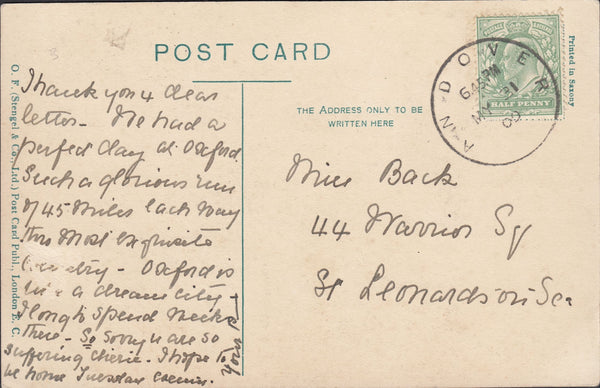 POST CARD
Thank you 4 dear
letter - We had a
perfect day at Oxford
Such a glorious run
of 45 miles each way
thro most exquisite
country - Oxford is
like a dream city -
I long to spend weeks
there - So sorry u are so
suffering cherie. I hope to
be home Tuesday evening.
Yours
THE ADDRESS ONLY TO BE
WRITTEN HERE
Miss Back
44 Warrior Sq
St Leonards on Sea
HALF PENNY
ANDOVER
6.45PM
MY 31
09
Printed in Saxony
O. F. (Stengel & Co., Ltd.) Post Card Publ., London E. C.